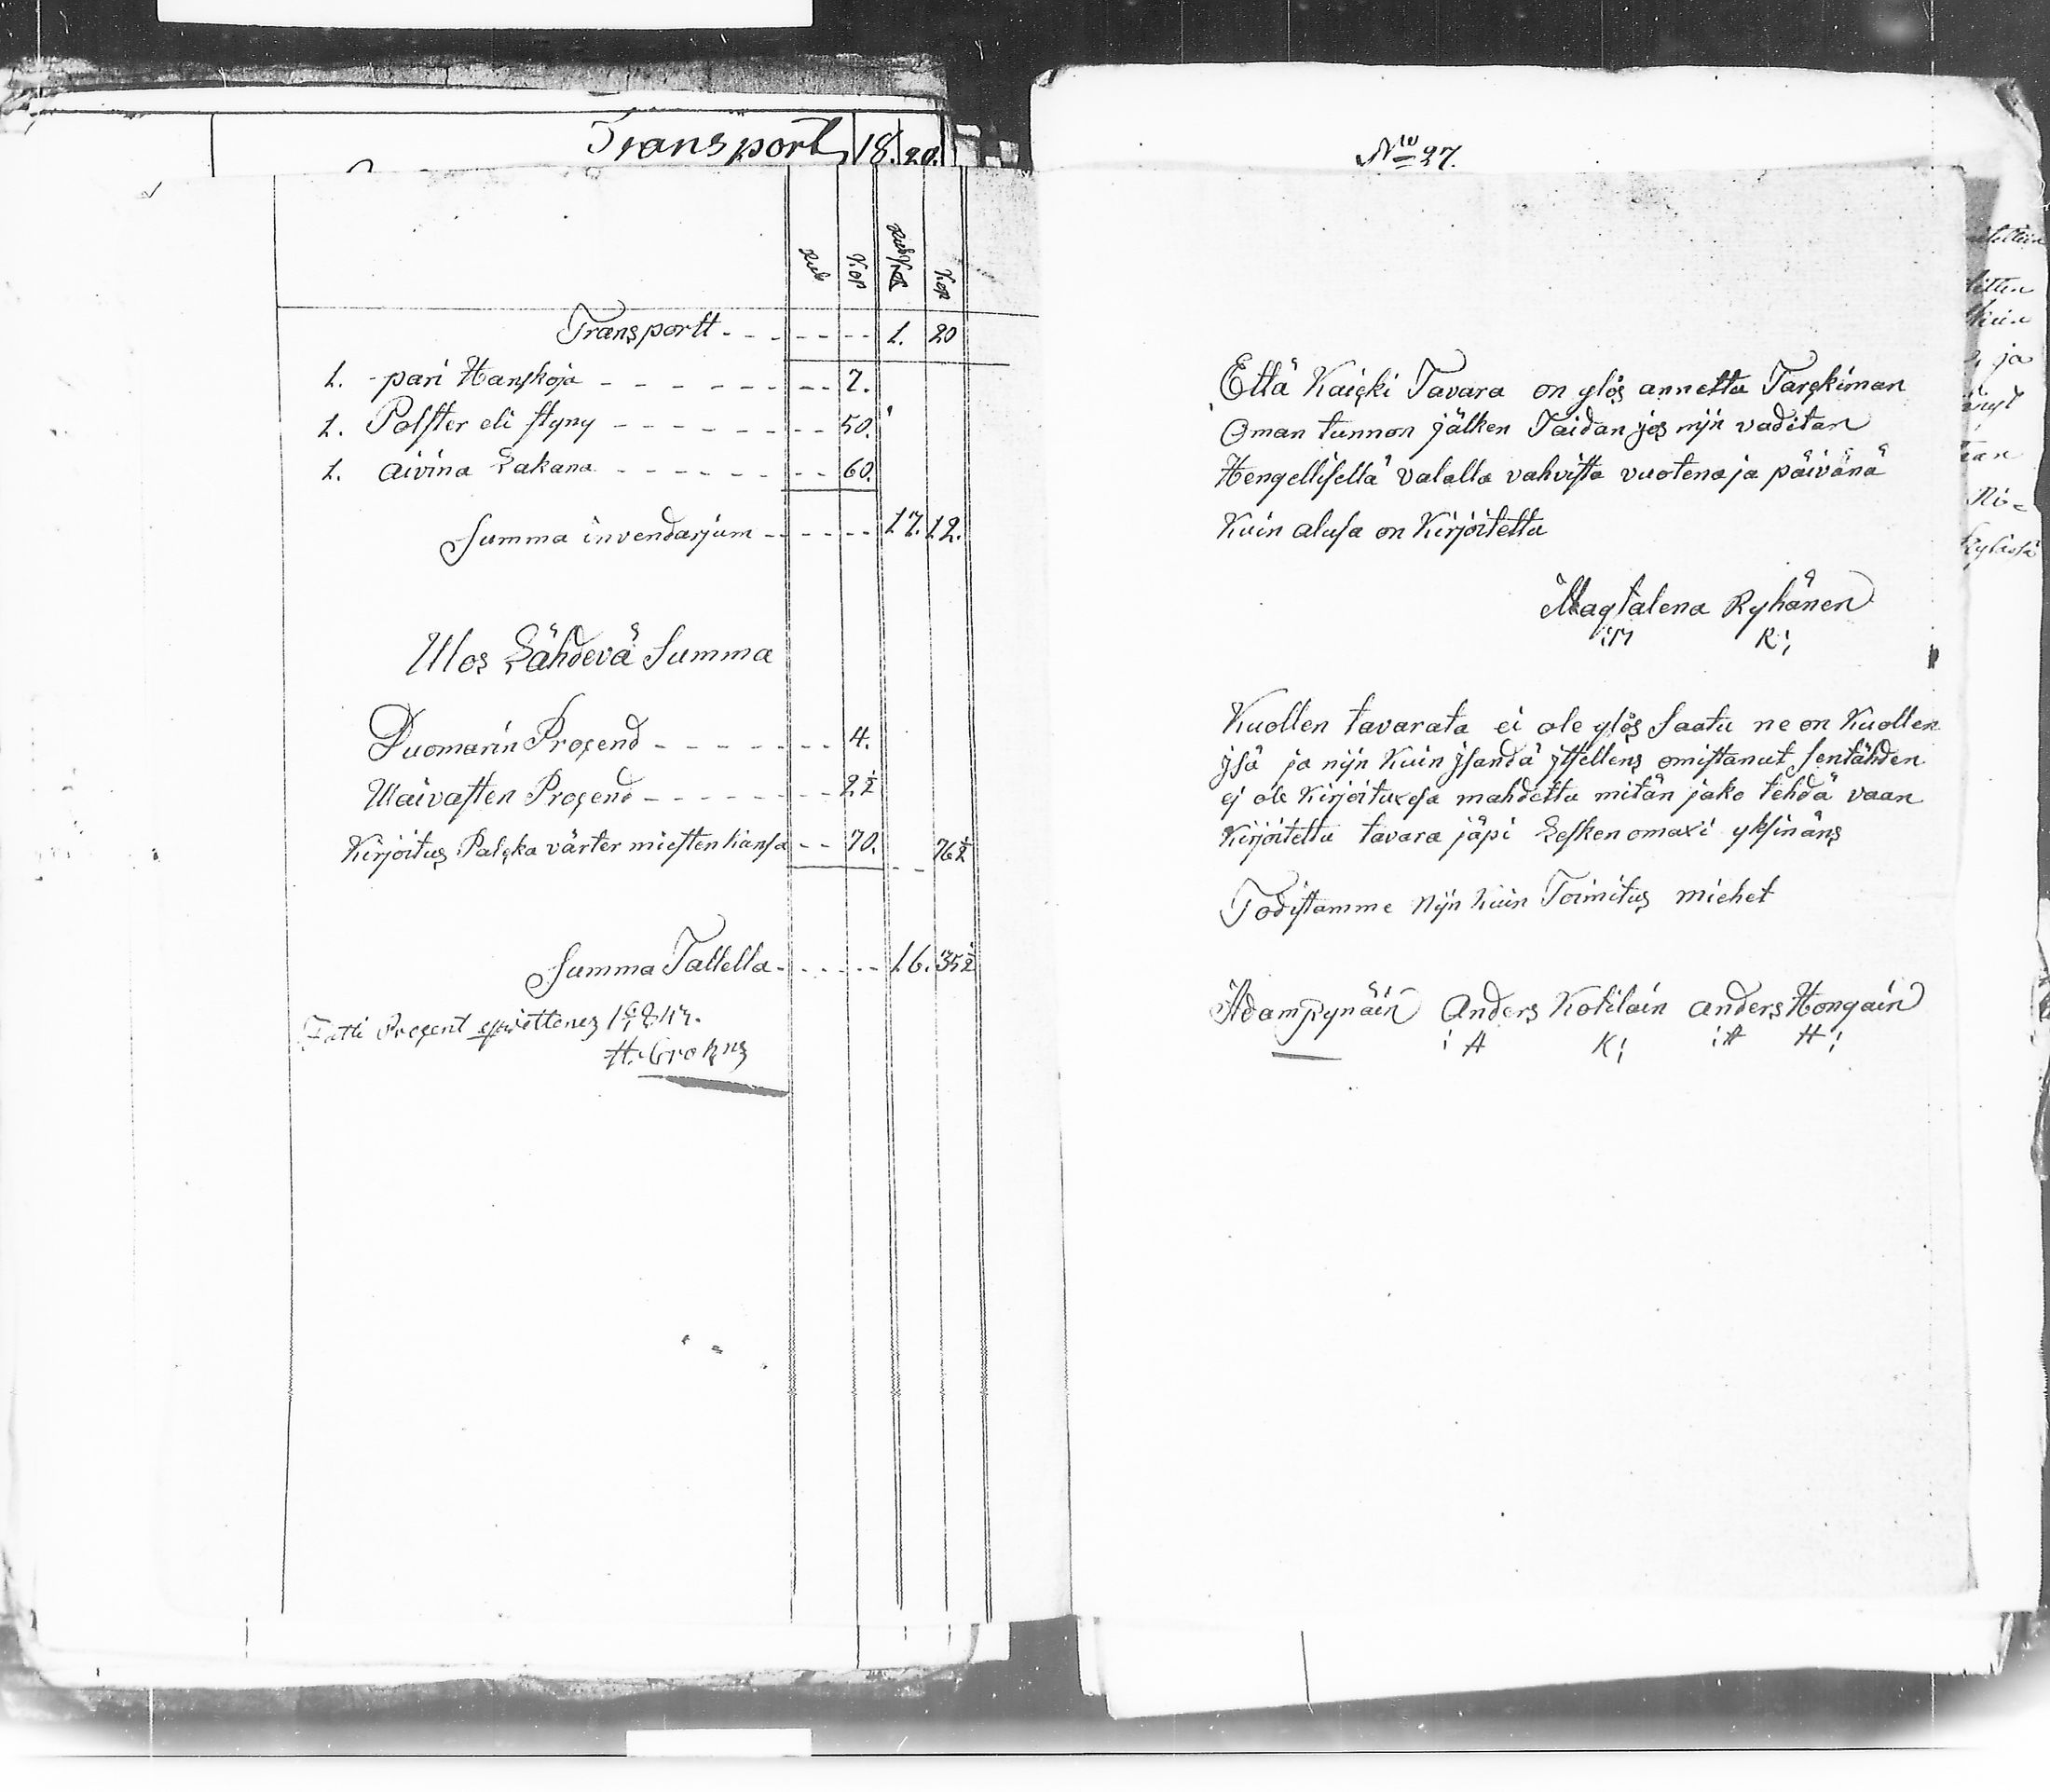 Transport 18. 20.
Rub Kop Rub Kop
Transportt - - - - - - 1. 20
1. pari Hanskoja - - - - - - - - - 7.
1. Polster eli styny - - - - - - - - - 50.
1. aivina Lakana - - - - - - - - 60.
Summa invendarjum - - - - - - 17. 12.
Ulos Lähdevä Summa
Duomarin Prosend - - - - - - - - 4.
Waivasten Prosend - - - - - - - - 2½
Kirjoitus Palcka värter miesten kansa - - 70. - - 76½
Summa Tallella - - - - - - 16. 35½
Fatti Procent
No 27.
Että Kaicki Tavara on ylös annettu Tarckiman
Oman tunnon jälken Taidan jos nijn vaditan
Hengellisellä valalla vahvista vuotena ja päivänä
Kuin alusa on Kirjoitettu
Magtalena Ryhänen
:M R:
Kuollen tavarata ei ole ylös saatu ne on Kuollen
Jsä ja nijn Kuin Jsändä jtsellens omistanut sentähden
ej ole Kirjoituxesa mahdettu mitän jako tehdä vaan
Kirjoitettu tavara jäpi Lesken omaxi yksinäns
Todistamme Nijn kuin Toimitus miehet
Adam Pynäin Anders Kotilain anders Hongain
: A K: :A H: